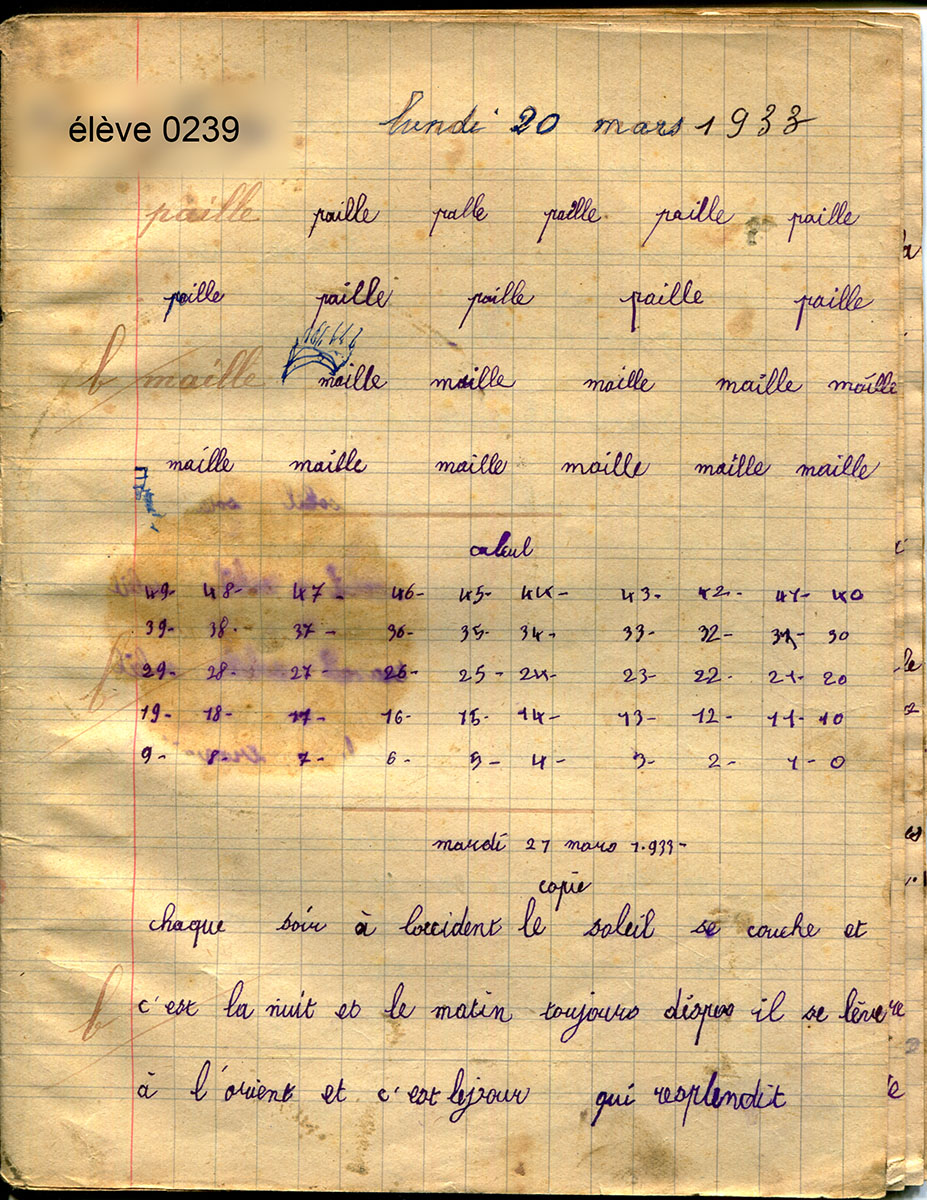 élève 0239
lundi 20 mars 1933
paille paille palle paille paille paille
paille paille paille paille paille
b maille maille maille maille maille maille
maille maille maille maille maille maille
calcul
49- 48- 47- 46- 45- 44- 43- 42- 41- 40
39- 38- 37- 36- 35- 34- 33- 32- 31- 30
29- 28- 27- 26- 25- 24- 23- 22- 21- 20
b
19- 18- 17- 16- 15- 14- 13- 12- 11- 10
9- 8- 7- 6- 5- 4- 3- 2- 1- 0
mardi 21 mars 1.933-
copie
chaque soir à loccident le soleil se couche et
b c'est la nuit et le matin toujours dispos il se lève
à l'orient et c'est lejour qui resplendit